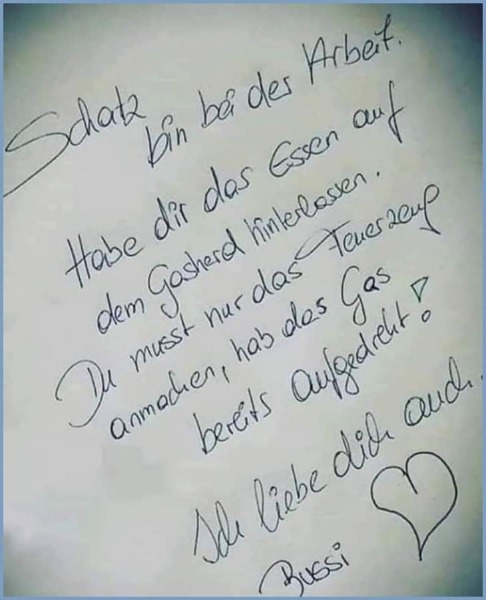 Schatz
bin bei der Arbeit.
Habe dir das Essen auf
dem Gasherd hinterlassen.
Du musst nur das Feuerzeug
anmachen, hab das Gas
bereits aufgedreht!
Ich liebe dich auch.
Bussi